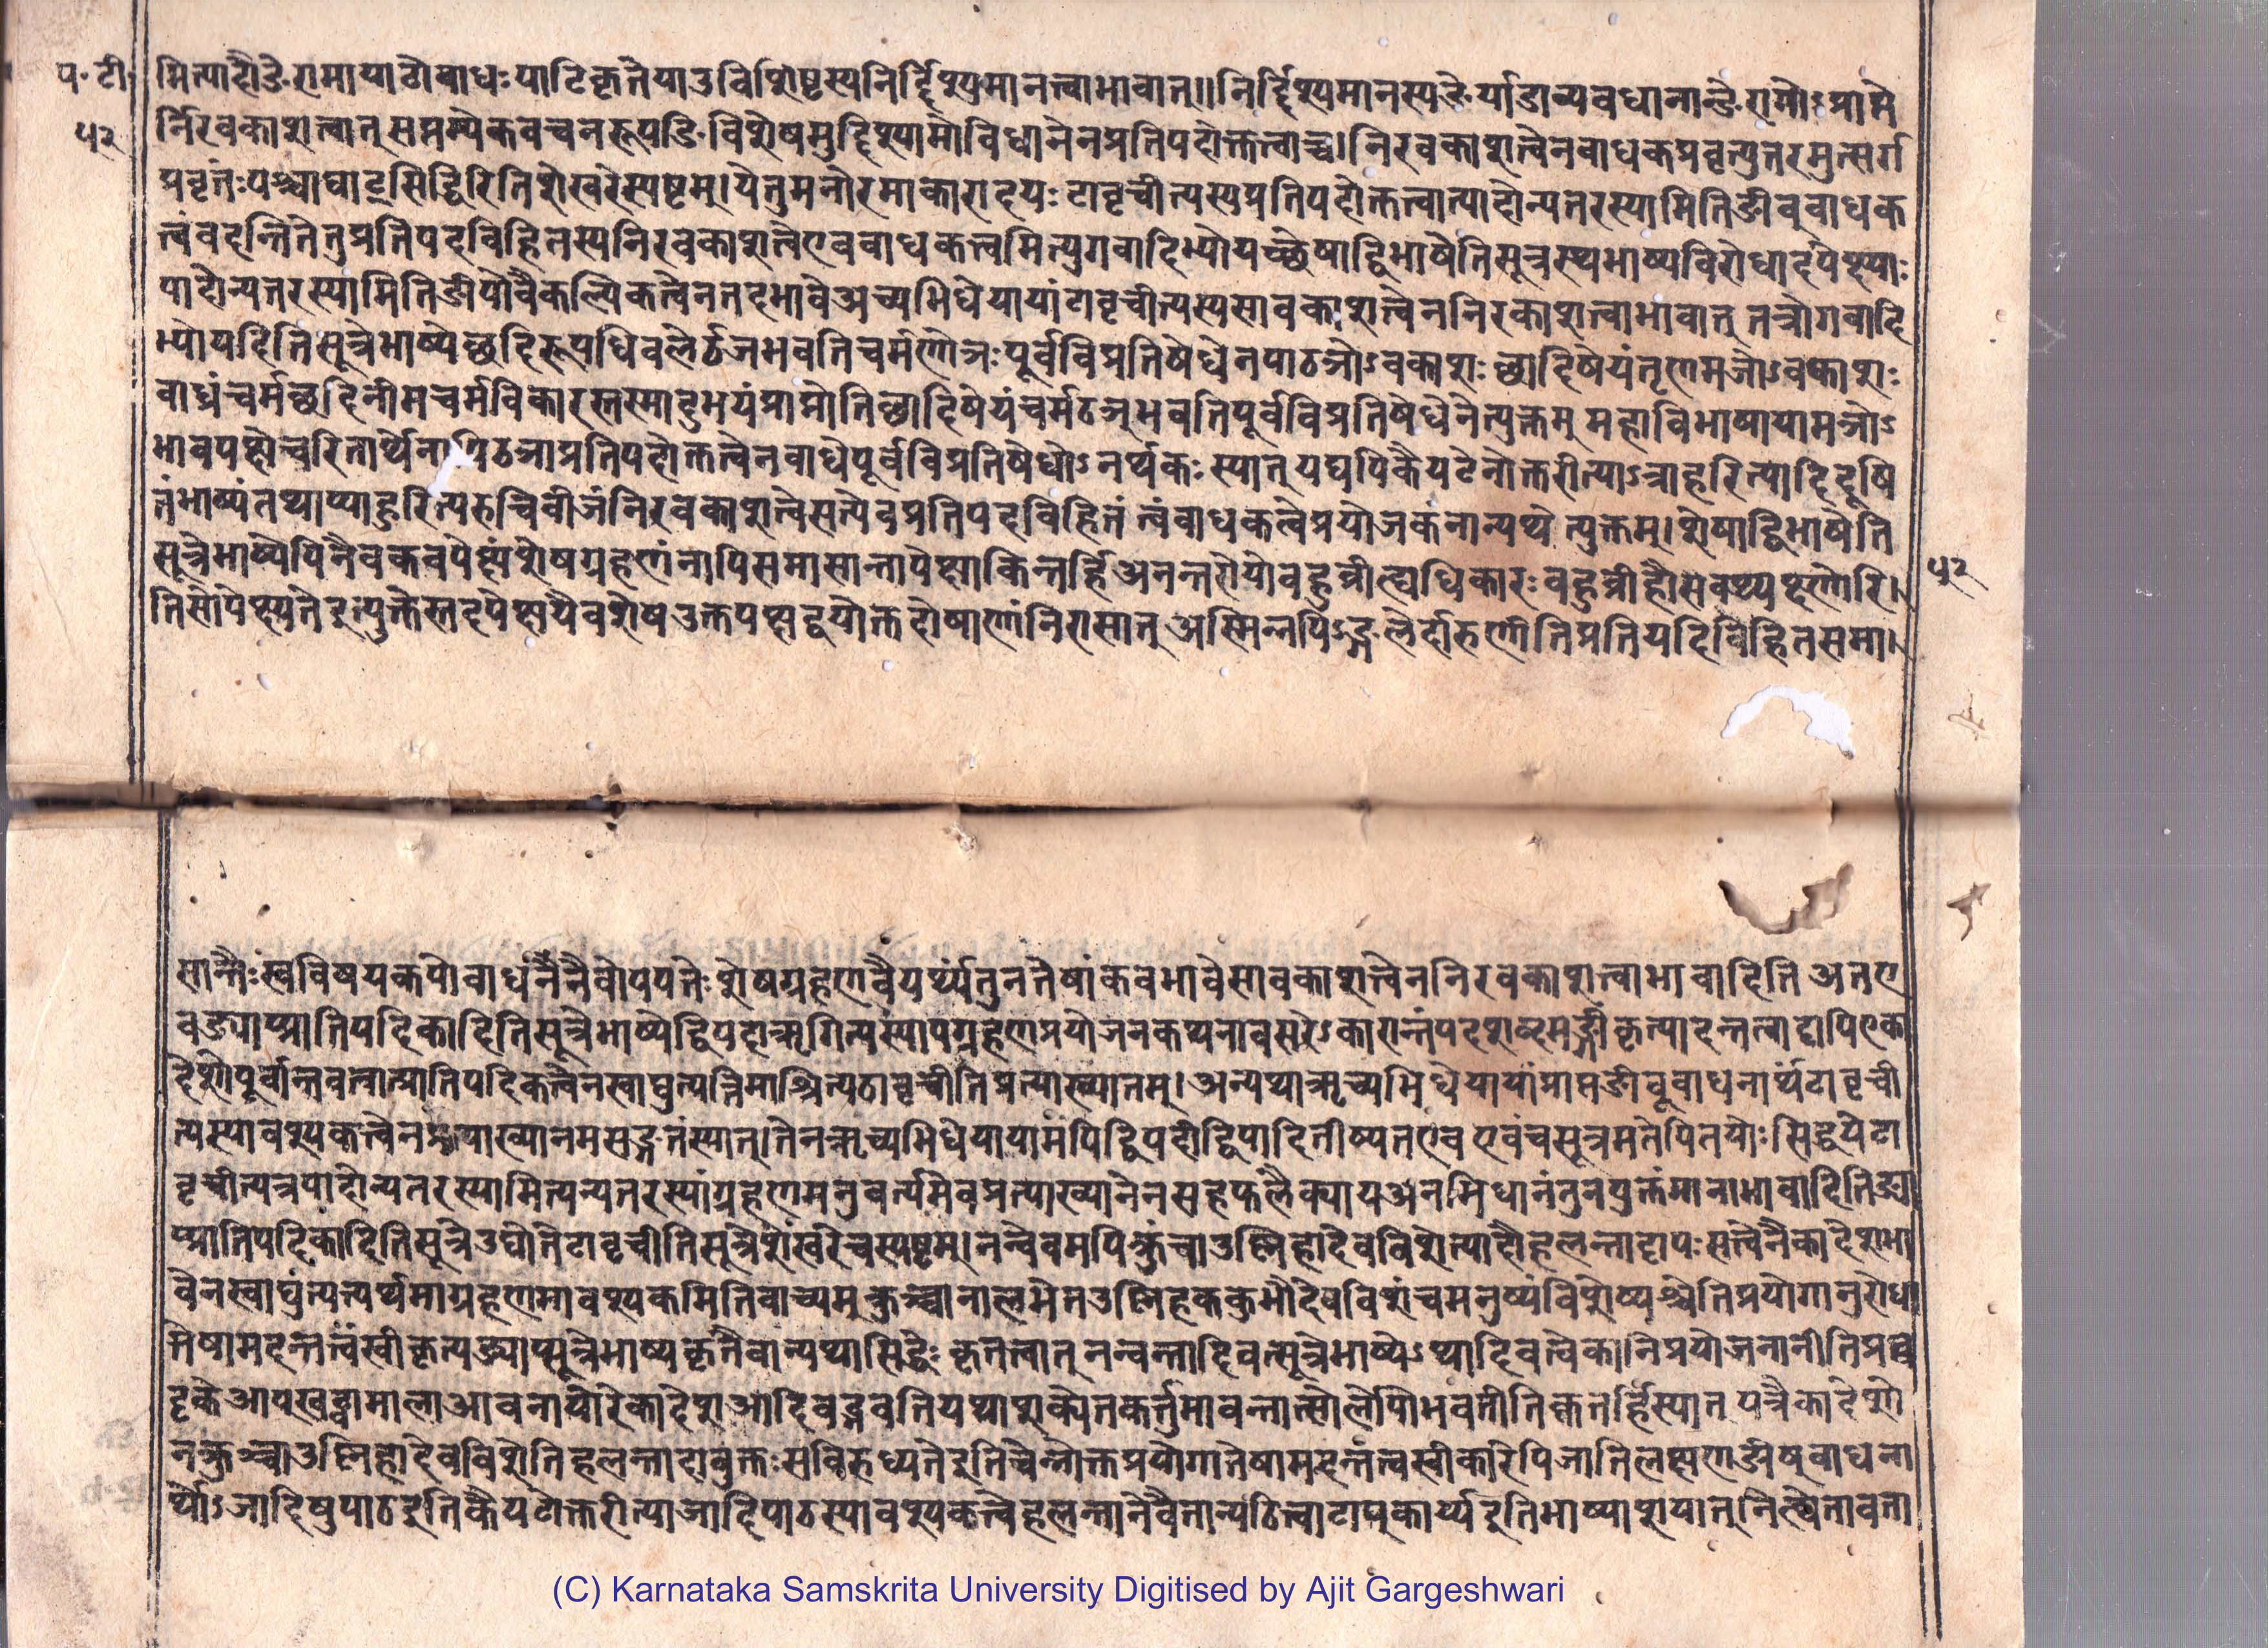 प॰ टी॰
५२
मित्यादौङेरामायाटोबाधः पाटिकृतेयाडविशिष्टस्यनिर्द्दिश्यमानत्वाभावात्॥निर्द्दिश्यमानस्यङेर्याडाव्यवधानान्ङेरामोऽप्राप्ते
र्निरवकाशत्वात्सप्तम्येकवचनरूपङिविशेषमुद्दिश्यामोविधानेनप्रतिपदोक्तत्वाच्च।निरवकाशत्वेनबाधकप्रवृत्त्युत्तरमुत्सर्ग
प्रवृत्तेःपश्चाद्याट्सिद्धिरितिशेखरेस्पष्टम्।येतुमनोरमाकारादयः टाबृचीत्यस्यप्रतिपदोक्तत्वात्पादोन्यतरस्यामितिङीब्बाधक
त्वंवदन्तितेतुप्रतिपदविहितस्यनिरवकाशत्वेएवबाधकत्वमित्युगवादिभ्योयच्छेषाद्विभाषेतिसूत्रस्थभाष्यविरोधादपेक्ष्याः
पादोन्यतरस्यामितिङीपोवैकल्पिकत्वेनतदभावेऋच्यभिधेयायांटाबृचीत्यस्यसावकाशत्वेननिरकाशत्वाभावात् तत्रोगवादि
भ्योयदितिसूत्रेभाष्येच्छदिरूपधिबलेर्ढञभवतिचर्मणोञःपूर्वविप्रतिषेधेनपाठञोऽवकाशः छादिषेयंतृणमञोऽवकाशः
वार्ध्रंचर्मच्छदिनीमचर्मविकारस्तस्मादुभयंप्राप्नोतिछादिषेयंचर्मढञ्भवतिपूर्वविप्रतिषेधेनेत्युक्तम् महाविभाषायामञोऽ
भावपक्षेचरितार्थेनापिढञाप्रतिपदोक्तत्वेनबाधेपूर्वविप्रतिषेधोऽनर्थकः स्यात् यद्यपिकैयटेनोक्तरीत्याऽत्राहरित्यादिदूषि
तंभाष्यंतथाप्याहुरित्यरुचिबीजंनिरवकाशत्वेसत्येवप्रतिपदविहितं त्वंबाधकत्वेप्रयोजकंनान्यथे त्युक्तम्।शेषाद्विभाषेति
सूत्रेभाष्येपिनैवकबपेक्षंशेषग्रहणंनापिसमासान्तापेक्षाकिन्तर्हिअनन्तरोयोबहुव्रीह्यधिकारः बहुव्रीहौसेवथ्यक्ष्णोरि।
तिसोपेक्ष्यतेइत्युक्तेस्तदपेक्षयैवशेषउक्तपक्षद्वयोक्तदोषाणांनिरासात् अस्मिन्नपिऽङ्गुलेर्दारुणीतिप्रतियदिविहितसमा।
५२
सान्तैःस्वविषयकपोबाधनेनैवोपपत्तेः शेषग्रहणवैयर्थ्यंतुनतेषांकबभावेसावकाशत्वेननिरवकाशत्वाभावादिति अतए
वङ्याप्प्रातिपदिकादितिसूत्रेभाष्येद्विपदाऋगित्यस्यापग्रहणप्रयोजनकथनावसरेऽकारान्तंपदशब्दमङ्गीकृत्यादन्तत्वाट्टापिएका
देशेपूर्वान्तवत्वात्प्रातिपदिकत्वेनस्वाद्युत्पत्तिमाश्रित्यठाबृचीतिप्रत्याख्यातम्।अन्यथाऋच्यभिधेयायांप्राप्तङीब्बाधनार्थंटाबृची
त्यस्यावश्यकत्वेनप्रत्याख्यानमसङ्गतंस्यात्।तेनऋच्यभिधेयायामपिद्विपदीद्विपादितीष्यतएव एवंचसूत्रमतेपितयोः सिद्धयेटा
बृचीत्यत्रपादोन्यतरस्यामित्यन्यतरस्यांग्रहणमनुवर्त्यमेवप्रत्याख्यानेनसहफलैक्यायअनभिधानंतुनयुक्तंमानाभावादितिङ्या
प्प्रातिपदिकादितिसूत्रेउद्योतेटाबृचीतिसूत्रेशेखरेचस्पष्टम्।नन्वेवमपिक्रुंचाउष्णिहादेवविशेत्यादौहलन्ताट्टापः सत्वेनैकादेशभा
वेनस्वाद्युंत्पत्त्यर्थमाग्रहणमावश्यकमितिवाच्यम् क्रुञ्चानालभेतउष्णिहककुभौदेवविशंचमनुष्यंविशेष्यश्चेतिप्रयोगानुरोधा
त्तेषामदन्तत्वंस्वीकृत्यङ्याप्सूत्रेभाष्यकृतैवान्यथासिद्धेः कृतत्वात् नन्वन्तादिवत्सूत्रेभाष्येऽथादिवत्वेकानिप्रयोजनानीतिप्रघ
ट्टकेआप्खट्वामालाआवनायोरेकादेशआदिवद्भवतियथाशक्येतकर्त्तुमाबन्तात्सोलोपोभवतीतिक्वतर्हिस्यात् यत्रैकादेशो
नक्रुञ्चाउष्णिहादेवविशेतिहलन्ताट्टाबुक्तःसविरुध्यतेइतिचेन्नोक्तप्रयोगात्तेषामदन्तत्वस्वीकारेपिजातिलक्षणङीष्बाधना
र्थोऽजादिषुपाठइतिकैयटोक्तरीत्याजादिपाठस्यावश्यकत्वेहलन्तानेवैतान्पठित्वाटाप्कार्य्यइतिभाष्याशयात्।नित्वेतावता
(C) Karnataka Samskrita University Digitised by Ajit Gargeshwari